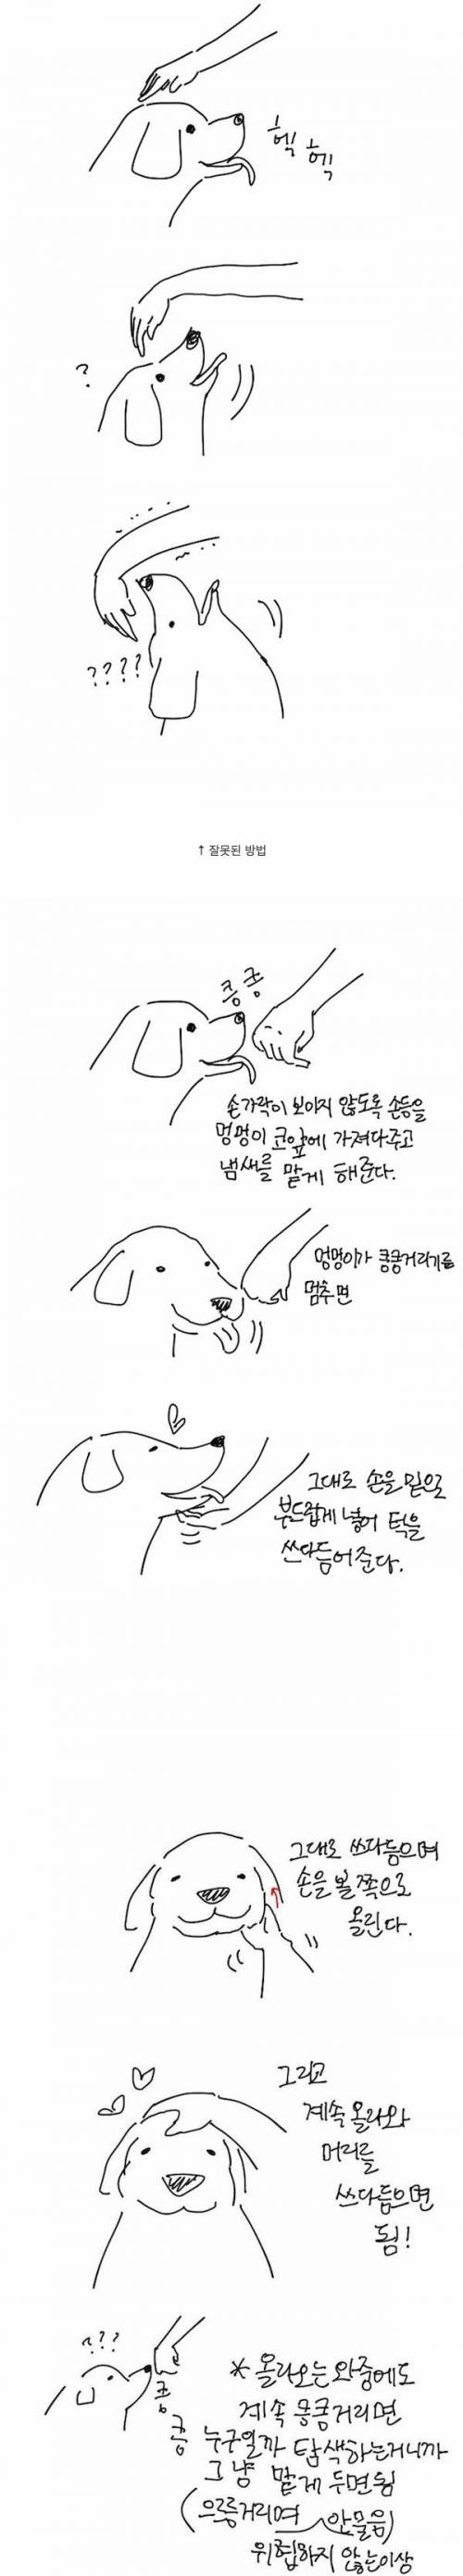 헥 헥
?
????
↑ 잘못된 방법
킁킁
손가락이 보이지 않도록 손등을
멍멍이 코앞에 가져다주고
냄새를 맡게 해준다.
멍멍이가 킁킁거리기를
멈추면
그대로 손을 밑으로
부드럽게 넣어 턱을
쓰다듬어준다.
그대로 쓰다듬으며
손을 볼쪽으로
올린다.
그리고
계속 올라와
머리를
쓰다듬으면
됨!
???
킁
킁
* 올라오는 와중에도
계속 킁킁거리면
누구일까 탐색하는거니까
그냥 맡게 두면됨
(으릉거리며 안물음)
위협하지 않는이상